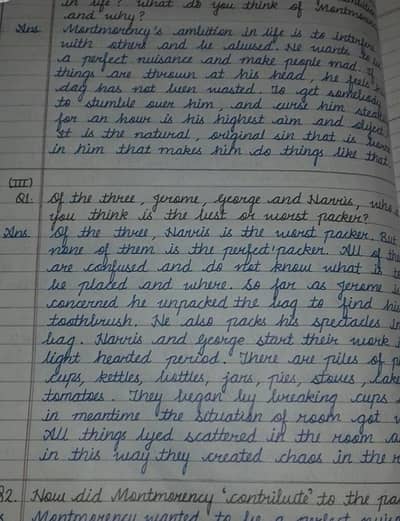 in life? What do you think of Montmorency
and why?
Ans Montmorency's ambition in life is to interfere
with others and be abused. He wants to
a perfect nuisance and make people mad. If
things are thrown at his head, he feels his
day has not been wasted. To get somebody
to stumble over him, and curse him
for an hour is his highest aim and
It is the natural, original sin that is born
in him that makes him do things like that
(III)
Q1. Of the three, Jerome, George and Harris, who
you think is the best or worst packer?
Ans 'Of the three, Harris is the worst packer. But
none of them is the perfect packer. All of the
are confused and do not know what is to
be placed and where. So far as Jerome is
concerned he unpacked the bag to find his
toothbrush. He also packs his spectacles in
bag. Harris and George start their work
light hearted period. There are piles of
cups, kettles, bottles, jars, pies, stoves, cake
tomatoes. They began by breaking cups
in meantime the situation of room got
All things lyed scattered in the room a
in this way they created chaos in the r
Q2. How did Montmorency 'contribute' to the pa
Montmorency wanted to be a perfect nuisa